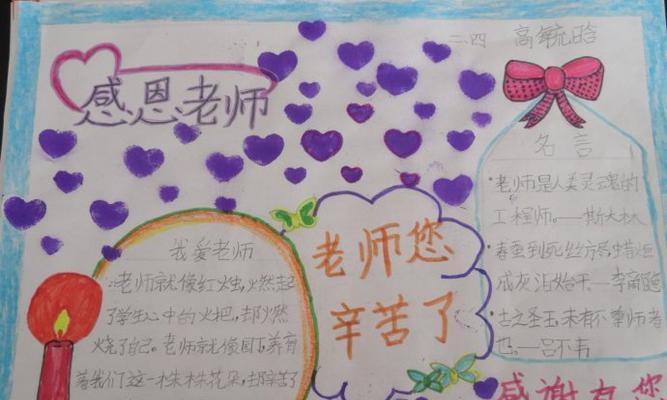 二.四 高毓晗
感恩老师
名言
·老师是人类灵魂的
工程师。——斯大林
·春蚕到死丝方尽,蜡炬
成灰泪始干——李商隐
·古之圣王,未有不尊师者
也。——吕不韦
我爱老师
老师就像红烛,燃起
了学生心中的火把,却燃
烧了自己。老师就像园丁,养育
着我们这一株株花朵,却辛苦了
老师您
辛苦了
感谢有您